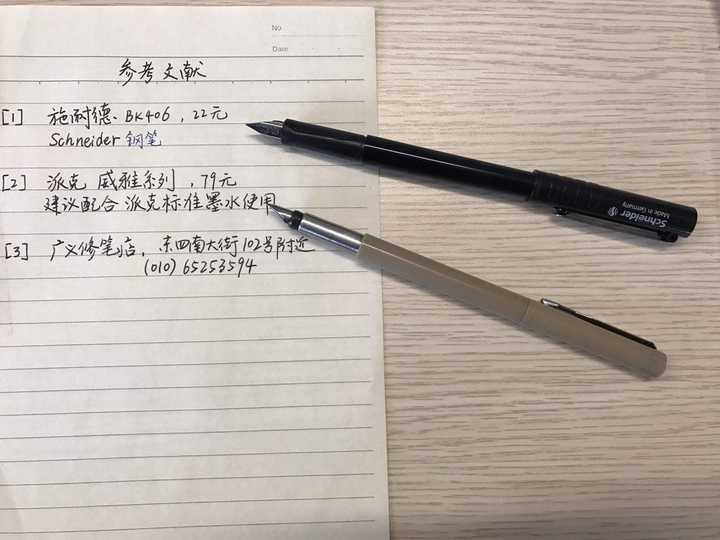 No
Date
参考文献
[1] 施耐德. BK406, 22元
Schneider 钢笔
[2] 派克 威雅系列, 79元
建议配合派克标准墨水使用
[3] 广义修笔店, 东四南大街102号附近
(010) 65253594
Schneider
Made in Germany